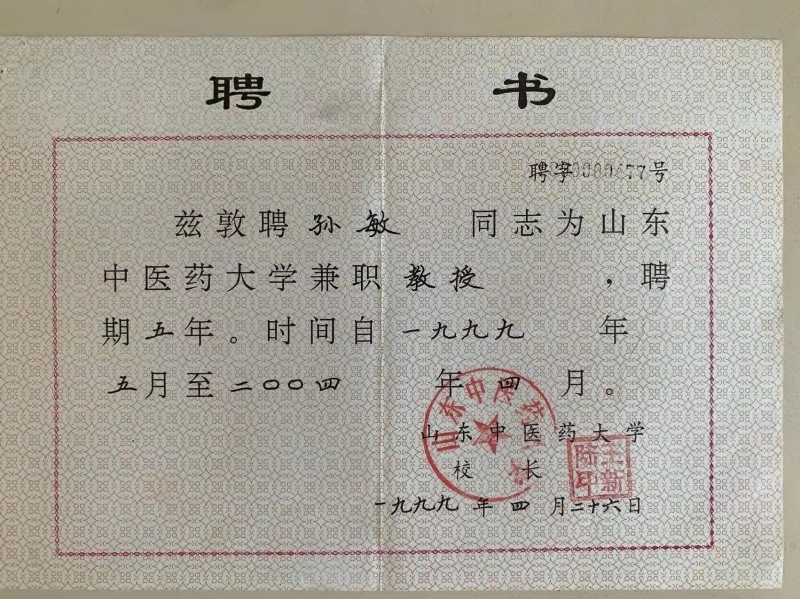 聘书
聘字
77号
兹敦聘孙敏 同志为山东
中医药大学兼职教授 ，聘
期五年。时间自一九九九 年
五月至二〇〇四 年四月。
山东中医药大学
山东中医药大学
校长
王新陆印
一九九九年四月二十六日